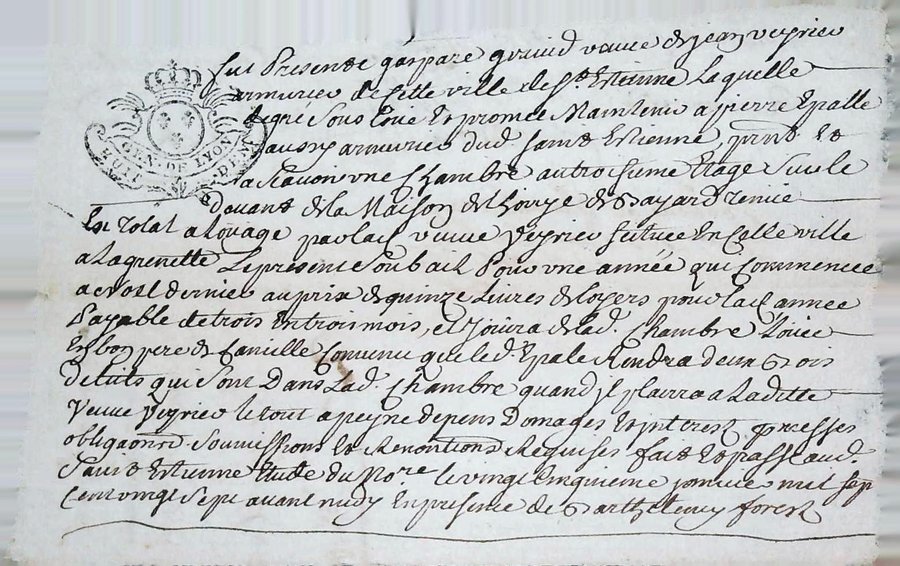 fut Presente gaspare grand veuve de jean Veyrier
armurier de Cette ville de St. Estienne Laquelle
degré Sous Loue Et promet Maintenir a pierre Epalle
aussy armurier dud. Saint Estienne, prnt Et
a Scavoir une Chambre au troisieme Etage Sur le
GEN. DE LYON
HUIT DEN
devant de la Maison de de Bayard tenue
En total a Louage par lad. veuve Veyrier scituée En Cette ville
a La grenette Le present Soubail Pour une année qui Commencée
a dernier au prix de quinze Livres de Loyers pour lad. année
Payable de trois En trois mois, et Jouira de lad. Chambre Louée
En bon pere de famille Convenu que led. Epale Rendra deux bois
de Lits qui sont Dans Lad. Chambre quand il plaira a Laditte
Veuve Veyrier le tout a peyne depens Domages Interest
obligaons Soumissions Et Renontions Requises fait Et passé aud.
Saint Estienne Etude du Nore. le vingt Cinquieme janvier mil sept
Cent vingt Sept avant midy En presence de Barthelemy forest